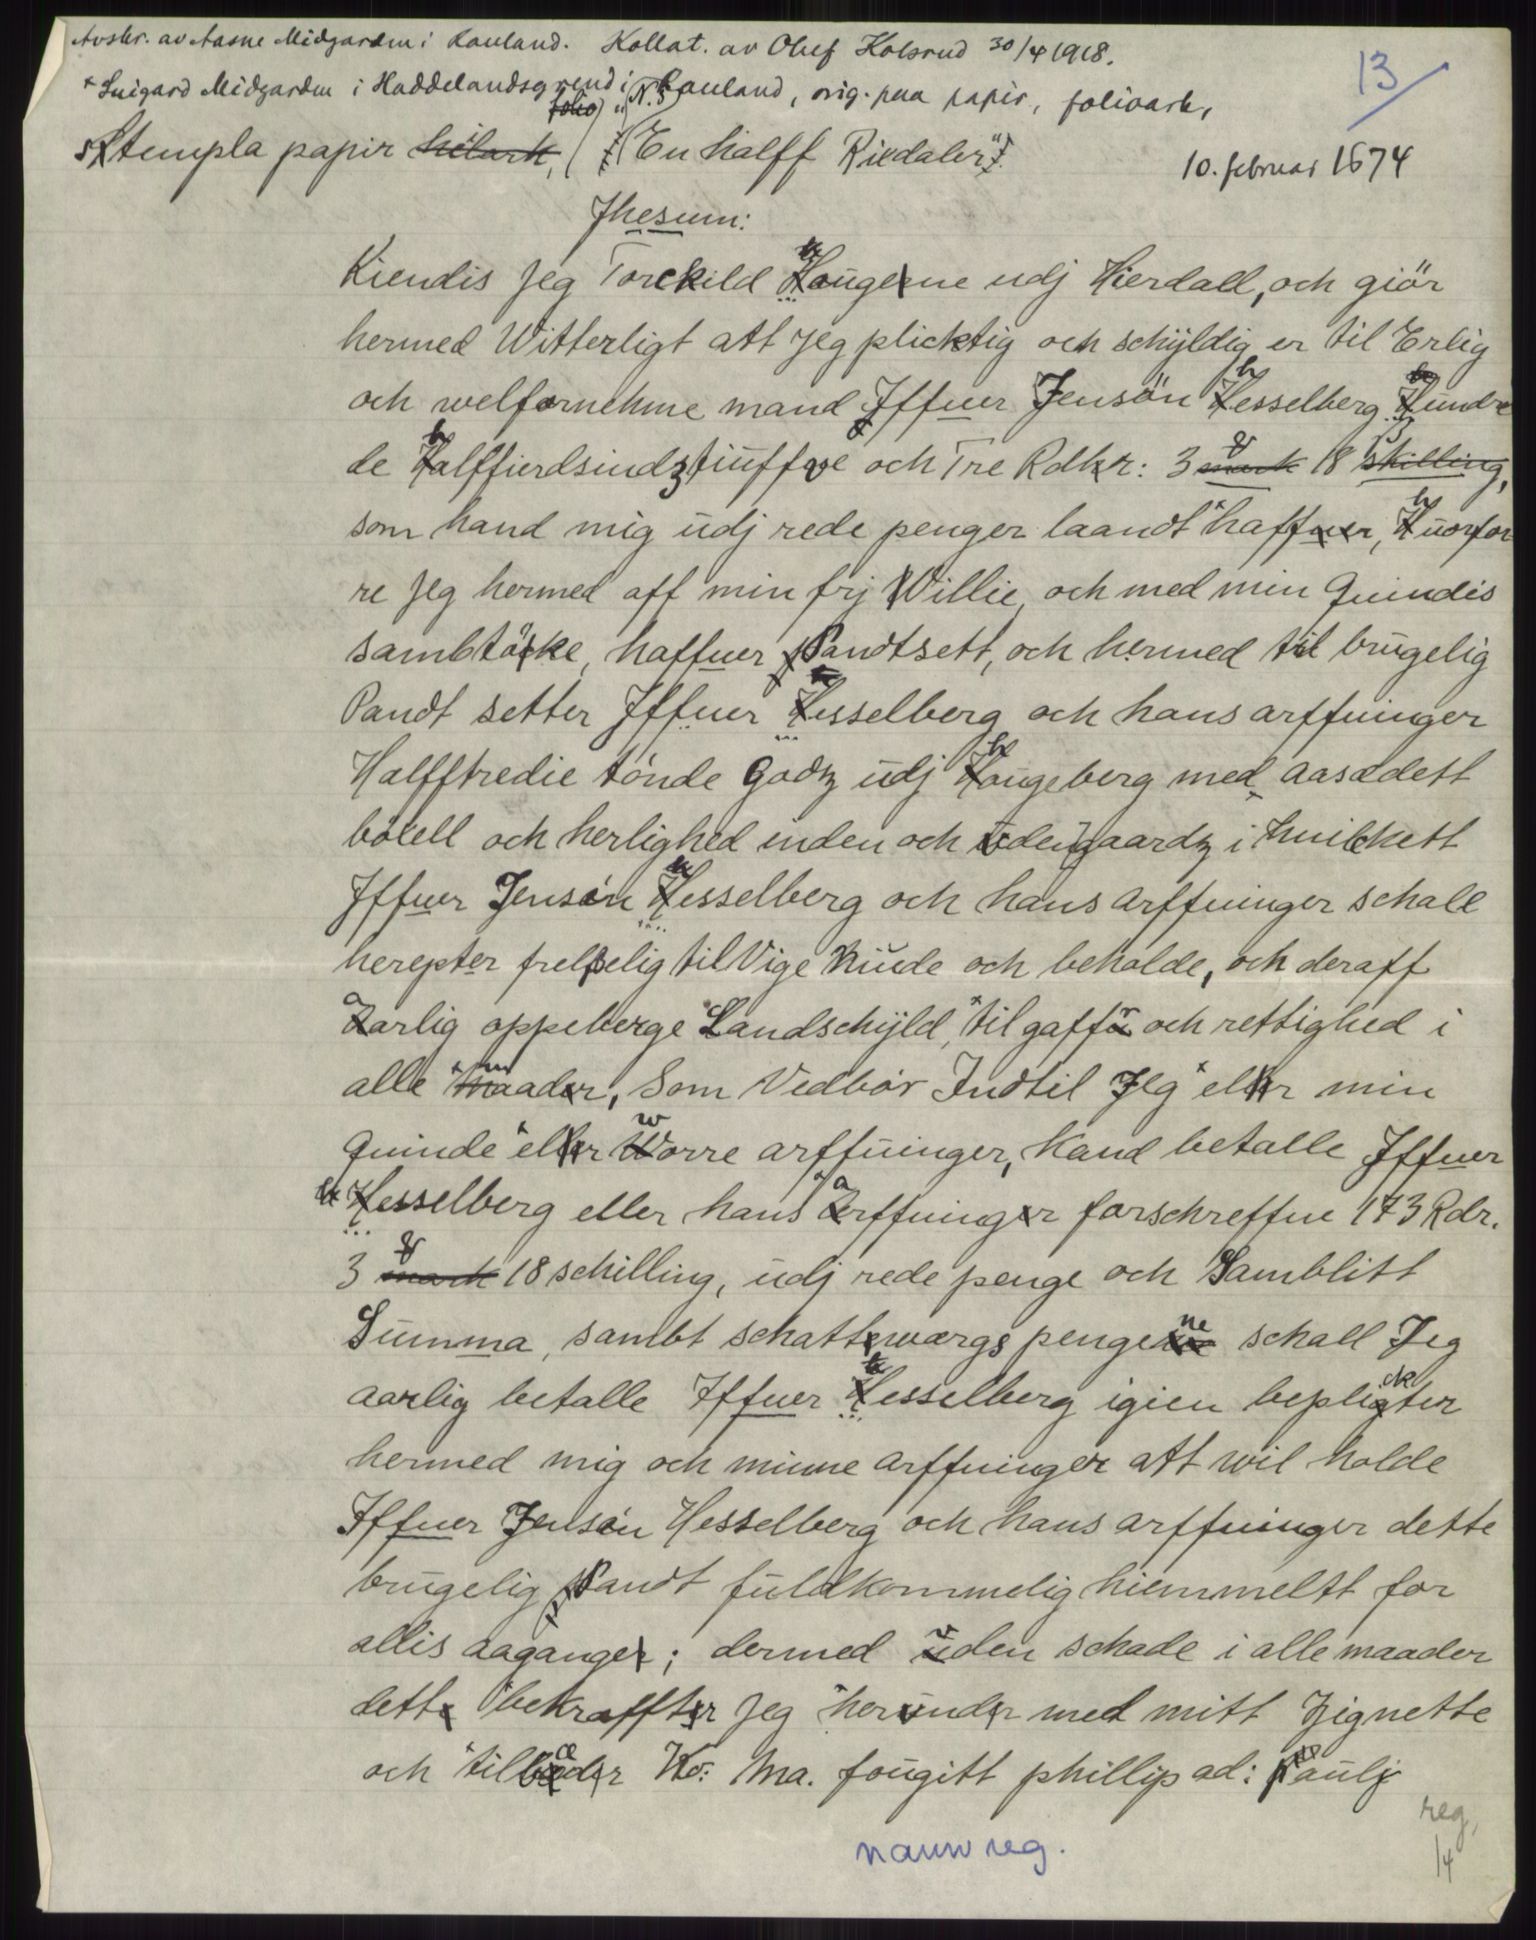 Avskr. av Aasne Midgarden i Rauland. Kollat. av Oluf Kolsrud 30/4 1918.
13
* Snigard Midgarden i Haddelandsgrend i Rauland, orig. paa papir, folioark,
Stempla papir helark, folio ("N. 8) (En halff Rixdaler")
10. februar 1674
Jhesum:
Kiendis Jeg Torckild hougene udj Hierdall, och giör
hermed Witterligt att Jeg plicktig och schÿldig er til Erlig
och welfornehme mand Iffuer Jensön hesselberg Hundre
de halffierdsindztiuffue och Tre Rdlr: 3 mark 18 skilling,
som hand mig udj rede penger laandt haffuer, huorfor
re Jeg hermed aff min frj Willie, och med min Quindis
sambtöcke, haffuer Pandtsett, och hermed til brugelig
Pandt setter Iffuer Hesselberg och hans arffuinger
Halfftredie tönde Godtz udj hougeberg med aasædett
böxell och herlighed inden och uden gaardz i huilckett
Iffuer Jensön Hesselberg och hans arffuinger schall
herepter frelselig tilVige niude och beholde, och deraff
aarlig oppeberge Landschÿld, tilgaffu och rettighed i
alle maader, Som Vedbör Indtil Jeg eller min
Quinde eller worre arffuinger, Kand betalle Iffuer
Hesselberg eller hans arffuinger forschreffne 173 Rdr.
3 mark 18 schilling, udj rede penge och Samblitt
Summa, sambt schattwærgs pengene schall Jeg
aarlig betalle Iffuer Hesselberg igien beplickter
hermed mig och minne arffuinger att wil holde
Iffuer Jensön Hesselberg och hans arffuinger dette
brugelig Pandt fuldkommelig hiemmeltt for
allis aagange; dermed uden schade i alle maader
dette bekraffter Jeg herunder med mitt Zignette
och tilbeder Ko: Ma. fougitt phillip ad: Paulj
reg.
14
namnreg.